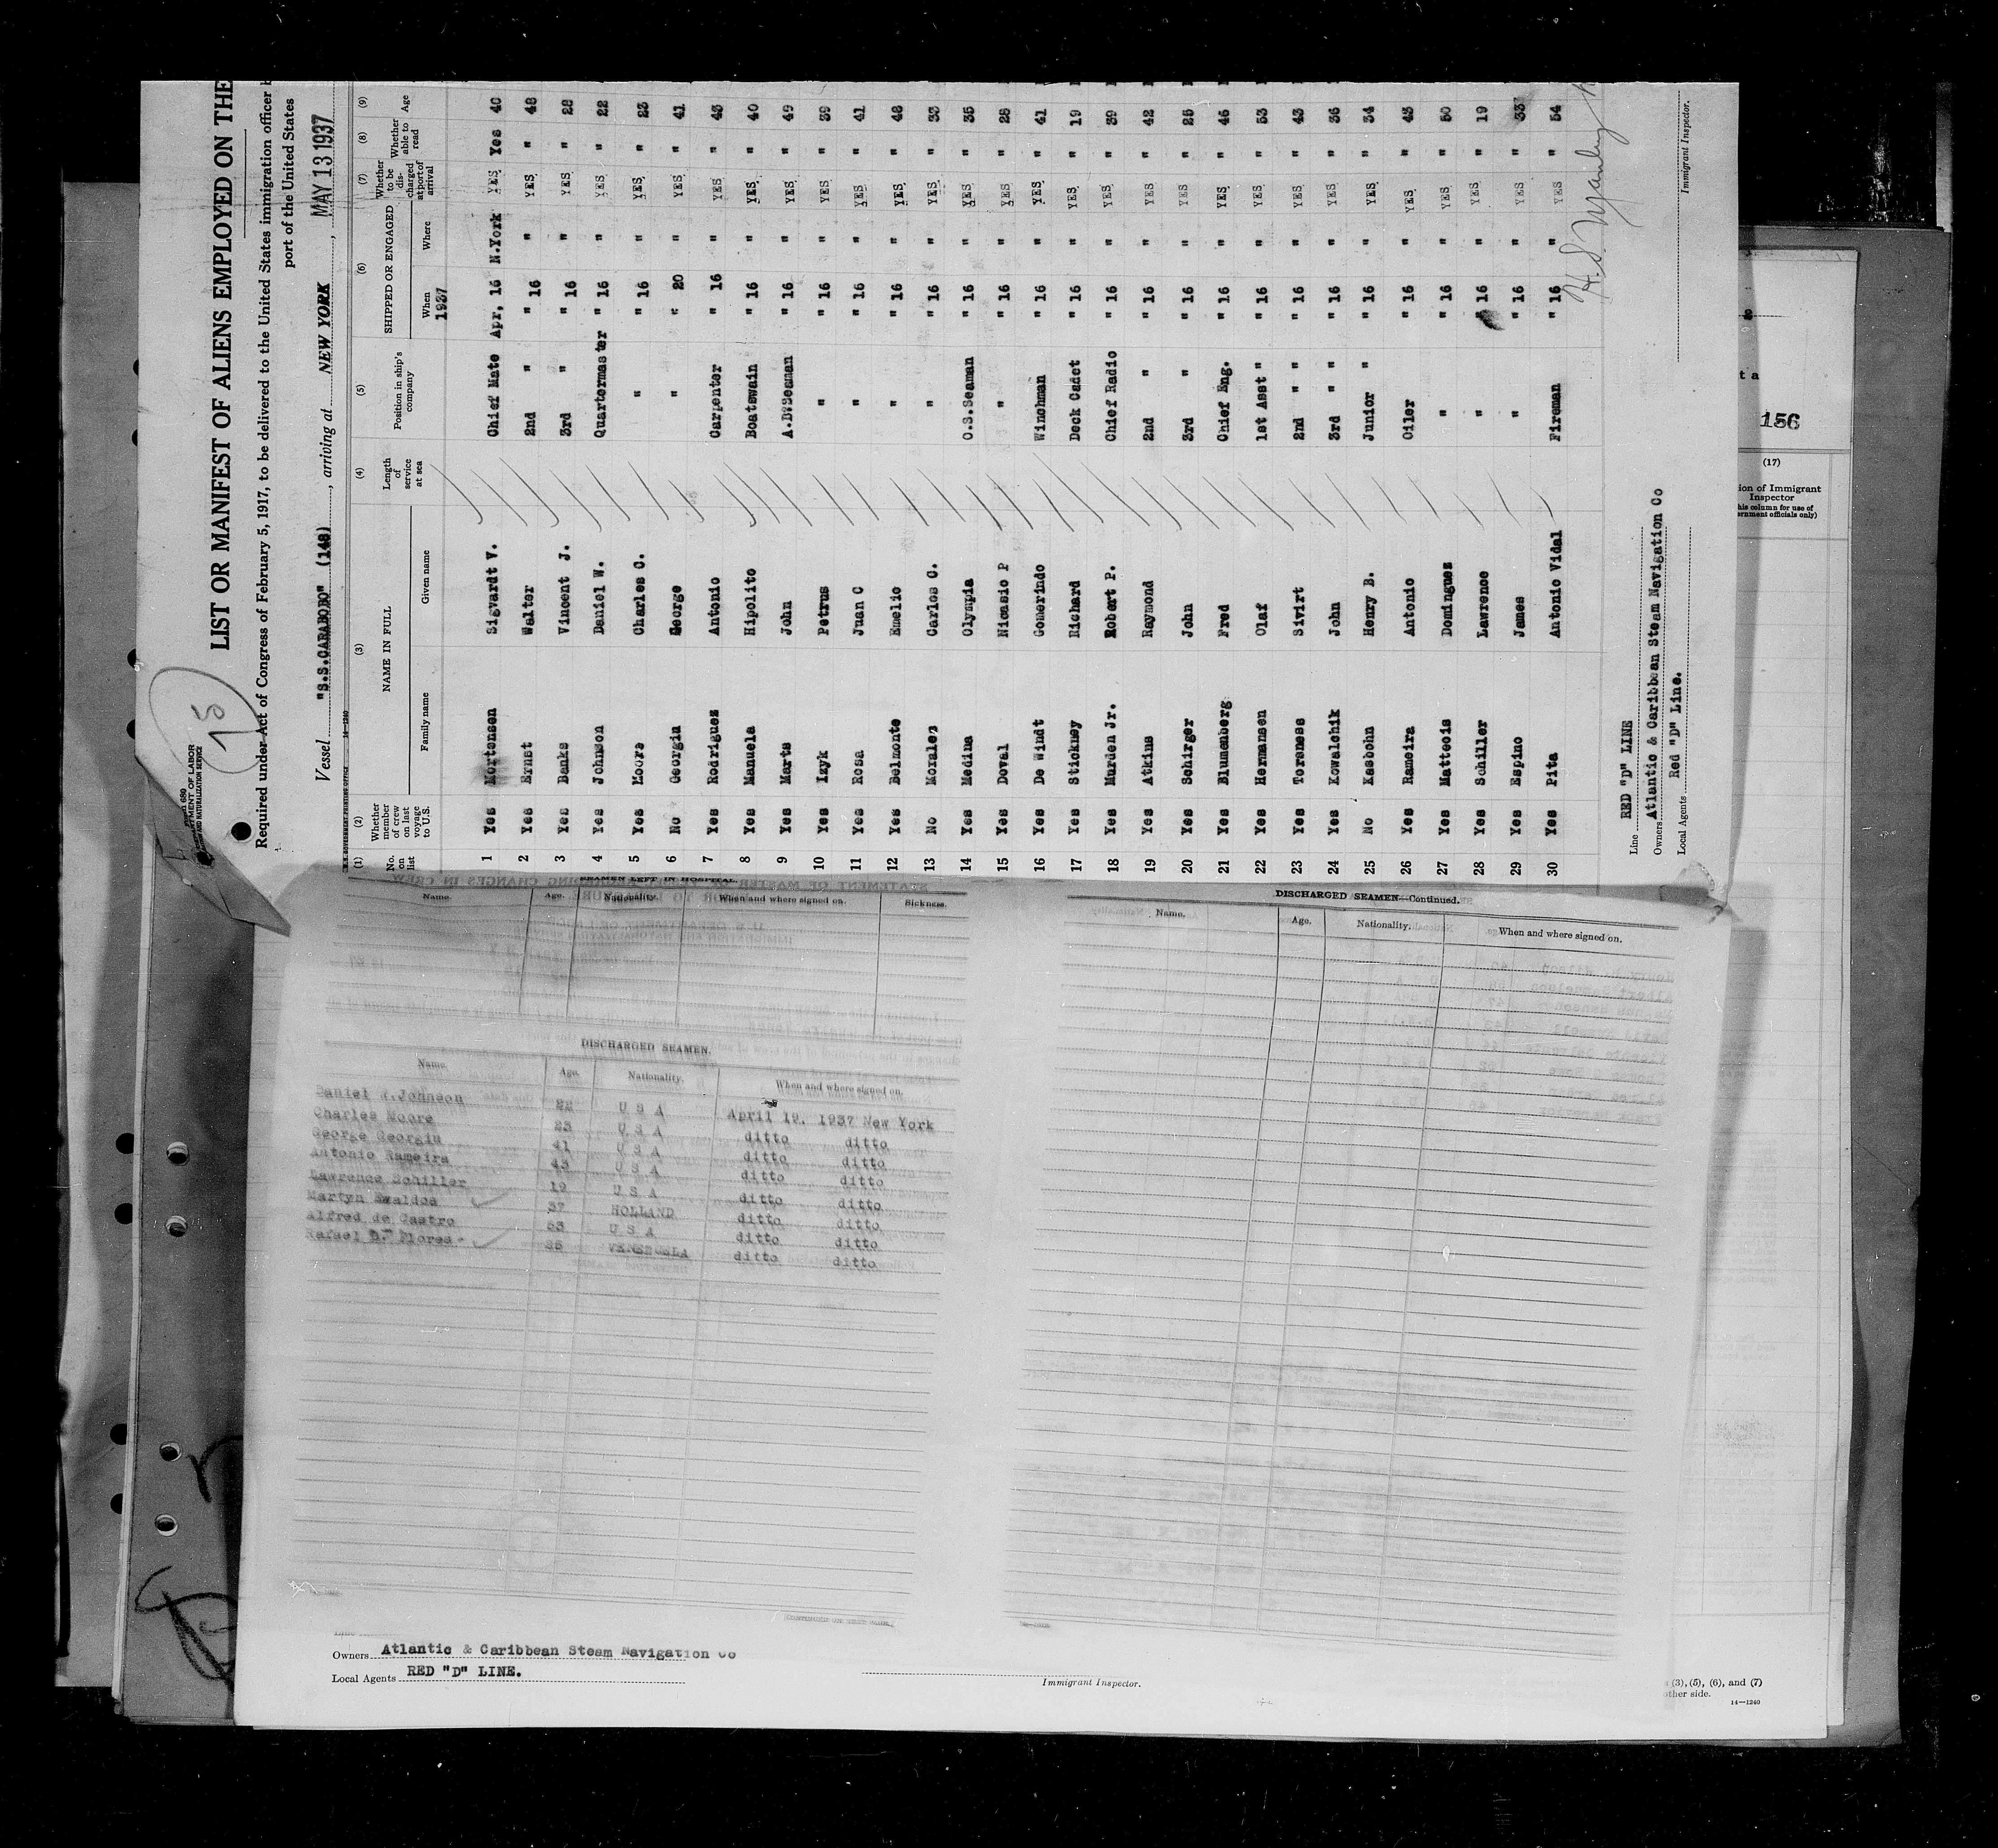 Form 680
U.S. DEPARTMENT OF LABOR
IMMIGRATION AND NATURALIZATION SERVICE
15
LIST OR MANIFEST OF ALIENS EMPLOYED ON THE
Required under Act of Congress of February 5, 1917, to be delivered to the United States immigration officer
port of the United States
Vessel "S.S.CARABOBO" (148), arriving at NEW YORK, MAY 13 1937
(1) (2) (3) (4) (5) (6) (7) (8) (9)
No. on list
Whether member of crew on last voyage to U.S.
NAME IN FULL
Family name Given name
Length of service at sea
Position in ship's company
SHIPPED OR ENGAGED
When Where
Whether to be discharged at port of arrival
Whether able to read
Age
1937
1 Yes Mortensen Sigvardt V. Chief Mate Apr, 16 N.York YES Yes 40
2 Yes Ernst Walter 2nd " " 16 " YES " 48
3 Yes Banks Vincent J. 3rd " " 16 " YES " 28
4 Yes Johnson Daniel W. Quartermaster " 16 " YES " 22
5 Yes Moore Charles C. " " 16 " YES " 23
6 No Georgin George " " 20 " YES " 41
7 Yes Rodriguez Antonio Carpenter " 16 " YES " 43
8 Yes Manuela Hipolito Boatswain " 16 " YES " 40
9 Yes Marts John A.B.Seaman " 16 " YES " 49
10 Yes Izyk Petrus " " 16 " YES " 39
11 Yes Rosa Juan C " " 16 " YES " 41
12 Yes Belmonte Emelio " " 16 " YES " 48
13 No Morales Carlos C. " " 16 " YES " 33
14 Yes Medina Olympia O.S.Seaman " 16 " YES " 35
15 Yes Doval Nicasio P " " 16 " YES " 28
16 Yes De Windt Gomerindo Winchman " 16 " YES " 41
17 Yes Stickney Richard Deck Cadet " 16 " YES " 19
18 Yes Murden Jr. Robert P. Chief Radio " 16 " YES " 39
19 Yes Atkins Raymond 2nd " " 16 " YES " 42
20 Yes Schirger John 3rd " " 16 " YES " 25
21 Yes Blumenberg Fred Chief Eng. " 16 " YES " 46
22 Yes Hermansen Olaf 1st Asst " " 16 " YES " 53
23 Yes Toreness Sivirt 2nd " " " 16 " YES " 43
24 Yes Kowalchik John 3rd " " " 16 " YES " 36
25 No Kasbohn Henry B. Junior " " 16 " YES " 34
26 Yes Rameira Antonio Oiler " 16 " YES " 43
27 Yes Matteois Domingues " " 16 " YES " 50
28 Yes Schiller Lawrence " " 16 " YES " 19
29 Yes Espino James " " 16 " YES " 33
30 Yes Pita Antonio Vidal Fireman " 16 " YES " 54
Line RED "D" LINE
Owners Atlantic & Caribbean Steam Navigation Co
Local Agents Red "D" Line.
Immigrant Inspector.
156
(17)
Inspector
SEAMEN LEFT IN HOSPITAL.
Name. Age. Nationality. When and where signed on. Sickness.
DISCHARGED SEAMEN.
Name. Age. Nationality. When and where signed on.
Daniel W.Johnson 22 U S A April 19, 1937 New York
Charles Moore 23 U S A ditto ditto
George Georgin 41 U S A ditto ditto
Antonio Rameira 43 U S A ditto ditto
Lawrence Schiller 19 U S A ditto ditto
Martyn Ewaldos 37 HOLLAND ditto ditto
Alfred de Castro 53 U S A ditto ditto
Rafael D. Flores 26 VENEZUELA ditto ditto
DISCHARGED SEAMEN—Continued.
Name. Age. Nationality. When and where signed on.
Owners Atlantic & Caribbean Steam Navigation Co
Local Agents RED "D" LINE.
Immigrant Inspector.
(3), (5), (6), and (7)
other side.
14—1240